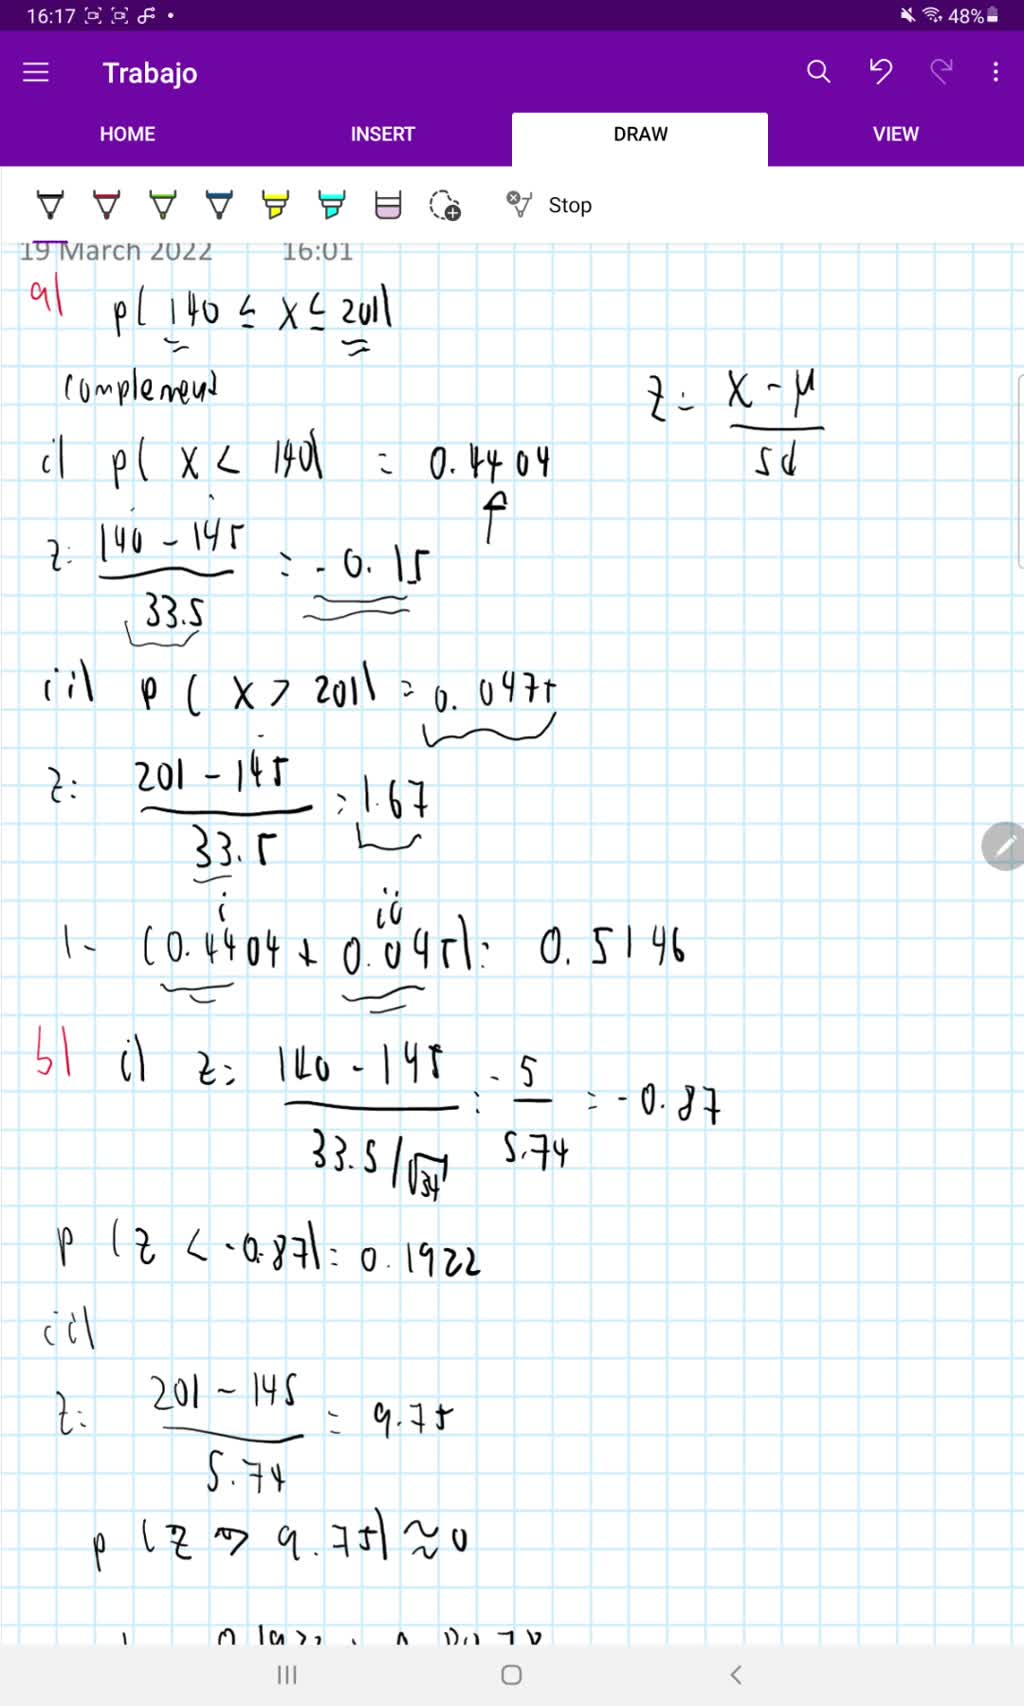 16:17 48%
Trabajo
HOME INSERT DRAW VIEW
Stop
19 March 2022 16:01
a) p( 140 ≤ x ≤ 201)
complement
z = x - μ / sd
i) p( x < 140) = 0.4404
z: 140 - 145 / 33.5 = -0.15
ii) p ( x > 201) = 0.0475
z: 201 - 145 / 33.5 = 1.67
i ii
1- (0.4404 + 0.045): 0.5146
b) i) z: 140 - 145 / 33.5/√34 : -5 / 5.74 = -0.87
p (z < -0.87) = 0.1922
ii)
z: 201 - 145 / 5.74 = 9.75
p (z > 9.75) ≈ 0